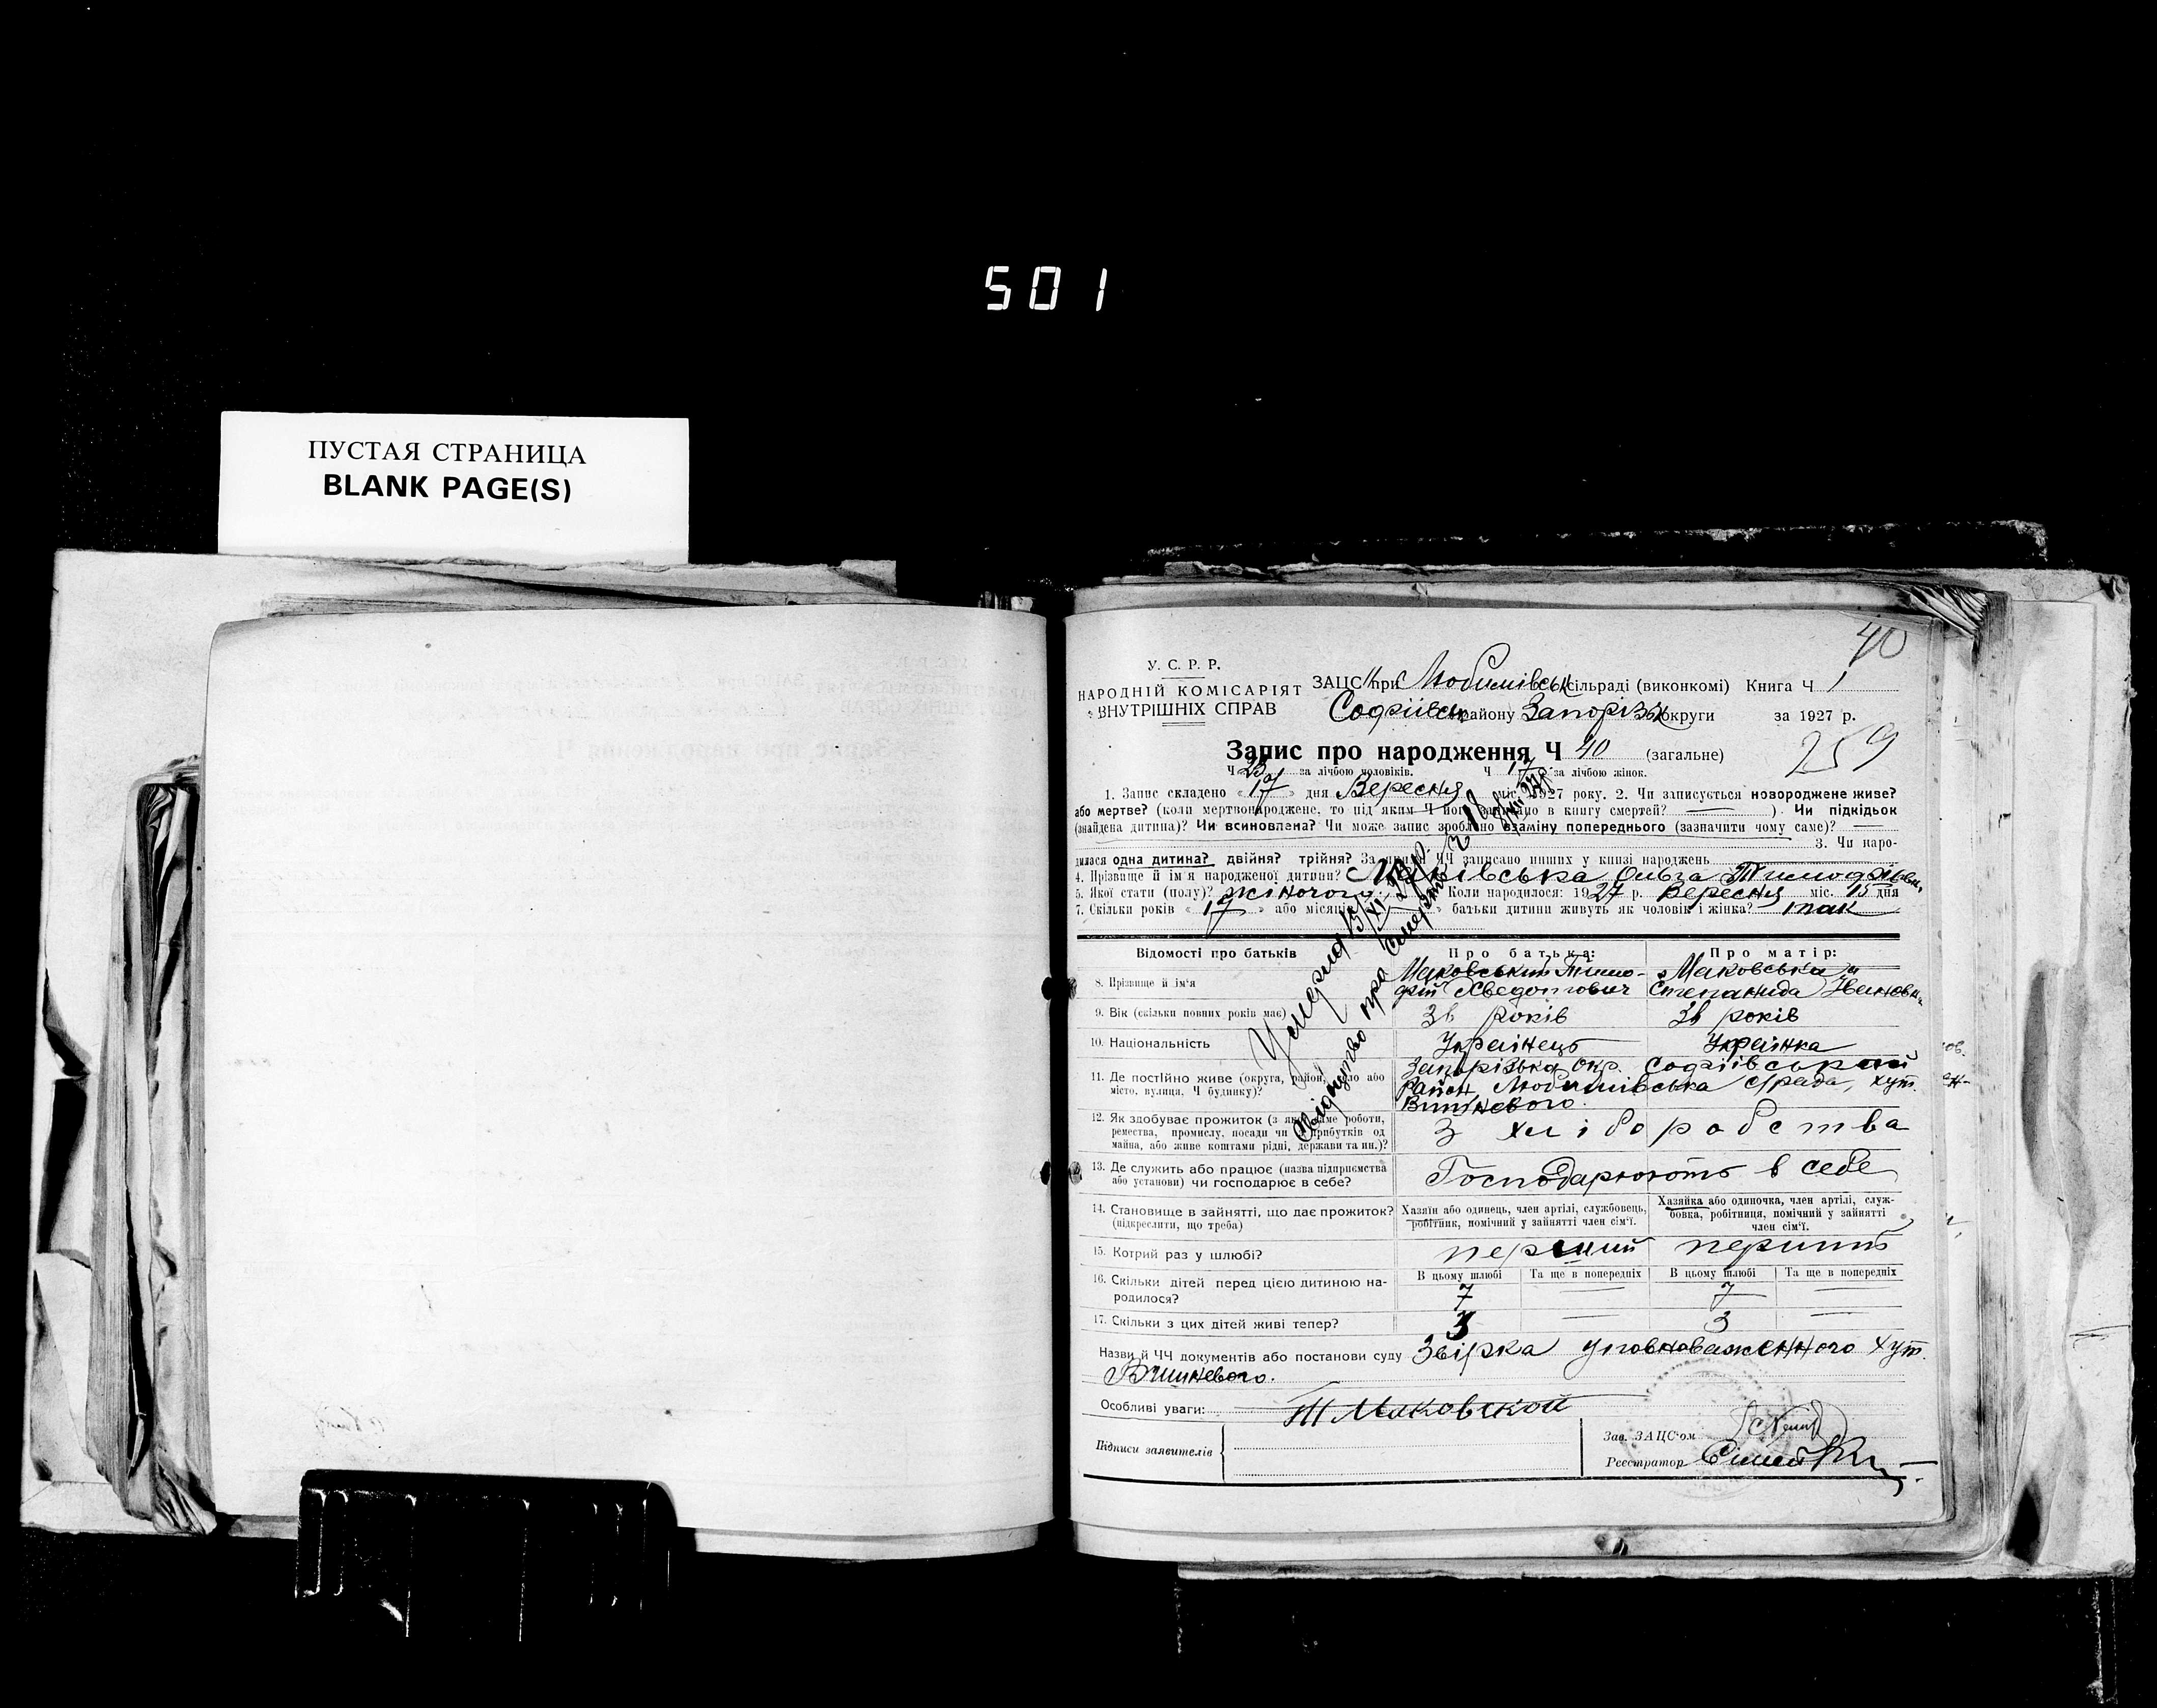 501
ПУСТАЯ СТРАНИЦА
BLANK PAGE(S)
40
У. С. Р. Р.
НАРОДНІЙ КОМІСАРІЯТ
ВНУТРІШНІХ СПРАВ
ЗАЦС при Любимівськ сільраді (виконкомі) Книга Ч 1
Софіївськ району Запорізьк округи за 1927 р.
Запис про народження Ч 40 (загальне)
259
Ч 23 за лічбою чоловіків. Ч 17 за лічбою жінок.
1. Запис складено « 17 » дня Вересня міс. 1927 року. 2. Чи записується новороджене живе?
або мертве? (коли мертвонароджене, то під яким Ч його записано в книгу смертей? ——). Чи підкідьок
(знайдена дитина)? Чи всиновлена? Чи може запис зроблено взаміну попереднього (зазначити чому саме)? ——
3. Чи наро-
дилася одна дитина? двійня? трійня? За якими ЧЧ записано инших у книзі народжень
4. Прізвище й ім'я народженої дитини? Маківська Ольга Тимофіївн.
5. Якої стати (полу)? жіночого. Коли народилося: 1927 р. Вересня міс. 15 дня
7. Скільки років « 17 » або місяців » батьки дитини живуть як чоловік і жінка? так
Умерла
Свідоцтво про смерть
Відомості про батьків
Про батька:
Про матір:
8. Прізвище й ім'я
Маковський Тимо-
фій Хведотович
Маковська
Степанида Івановн.
9. Вік (скільки повних років має)
36 років
36 років
10. Національність
Українець
Українка
11. Де постійно живе (округа, район, село або
місто, вулиця, Ч будинку)?
Запорізька окр. Софіївський
район Любимівська с/рада, хут.
Вишневого.
12. Як здобуває прожиток (з якої саме роботи,
ремества, промислу, посади чи з прибутків од
майна, або живе коштами рідні, держави та ин.)?
З хліборобства
13. Де служить або працює (назва підприємства
або установи) чи господарює в себе?
Господарюють в себе
14. Становище в зайнятті, що дає прожиток?
(підкреслити, що треба)
Хазяїн або одинець, член артілі, службовець,
робітник, помічний у зайнятті член сім'ї.
Хазяйка або одиночка, член артілі, служ-
бовка, робітниця, помічний у зайнятті
член сім'ї.
15. Котрий раз у шлюбі?
перший
перший
16. Скільки дітей перед цією дитиною на-
родилося?
В цьому шлюбі
Та ще в попередніх
В цьому шлюбі
Та ще в попередніх
7 —— 7 ——
17. Скільки з цих дітей живі тепер?
3 —— 3 ——
Назви й ЧЧ документів або постанови суду Звірка уповноваженного хут.
Вишневого.
Особливі уваги:
Т Маковской
Підписи заявителів
Зав. ЗАЦС'ом
Реєстратор